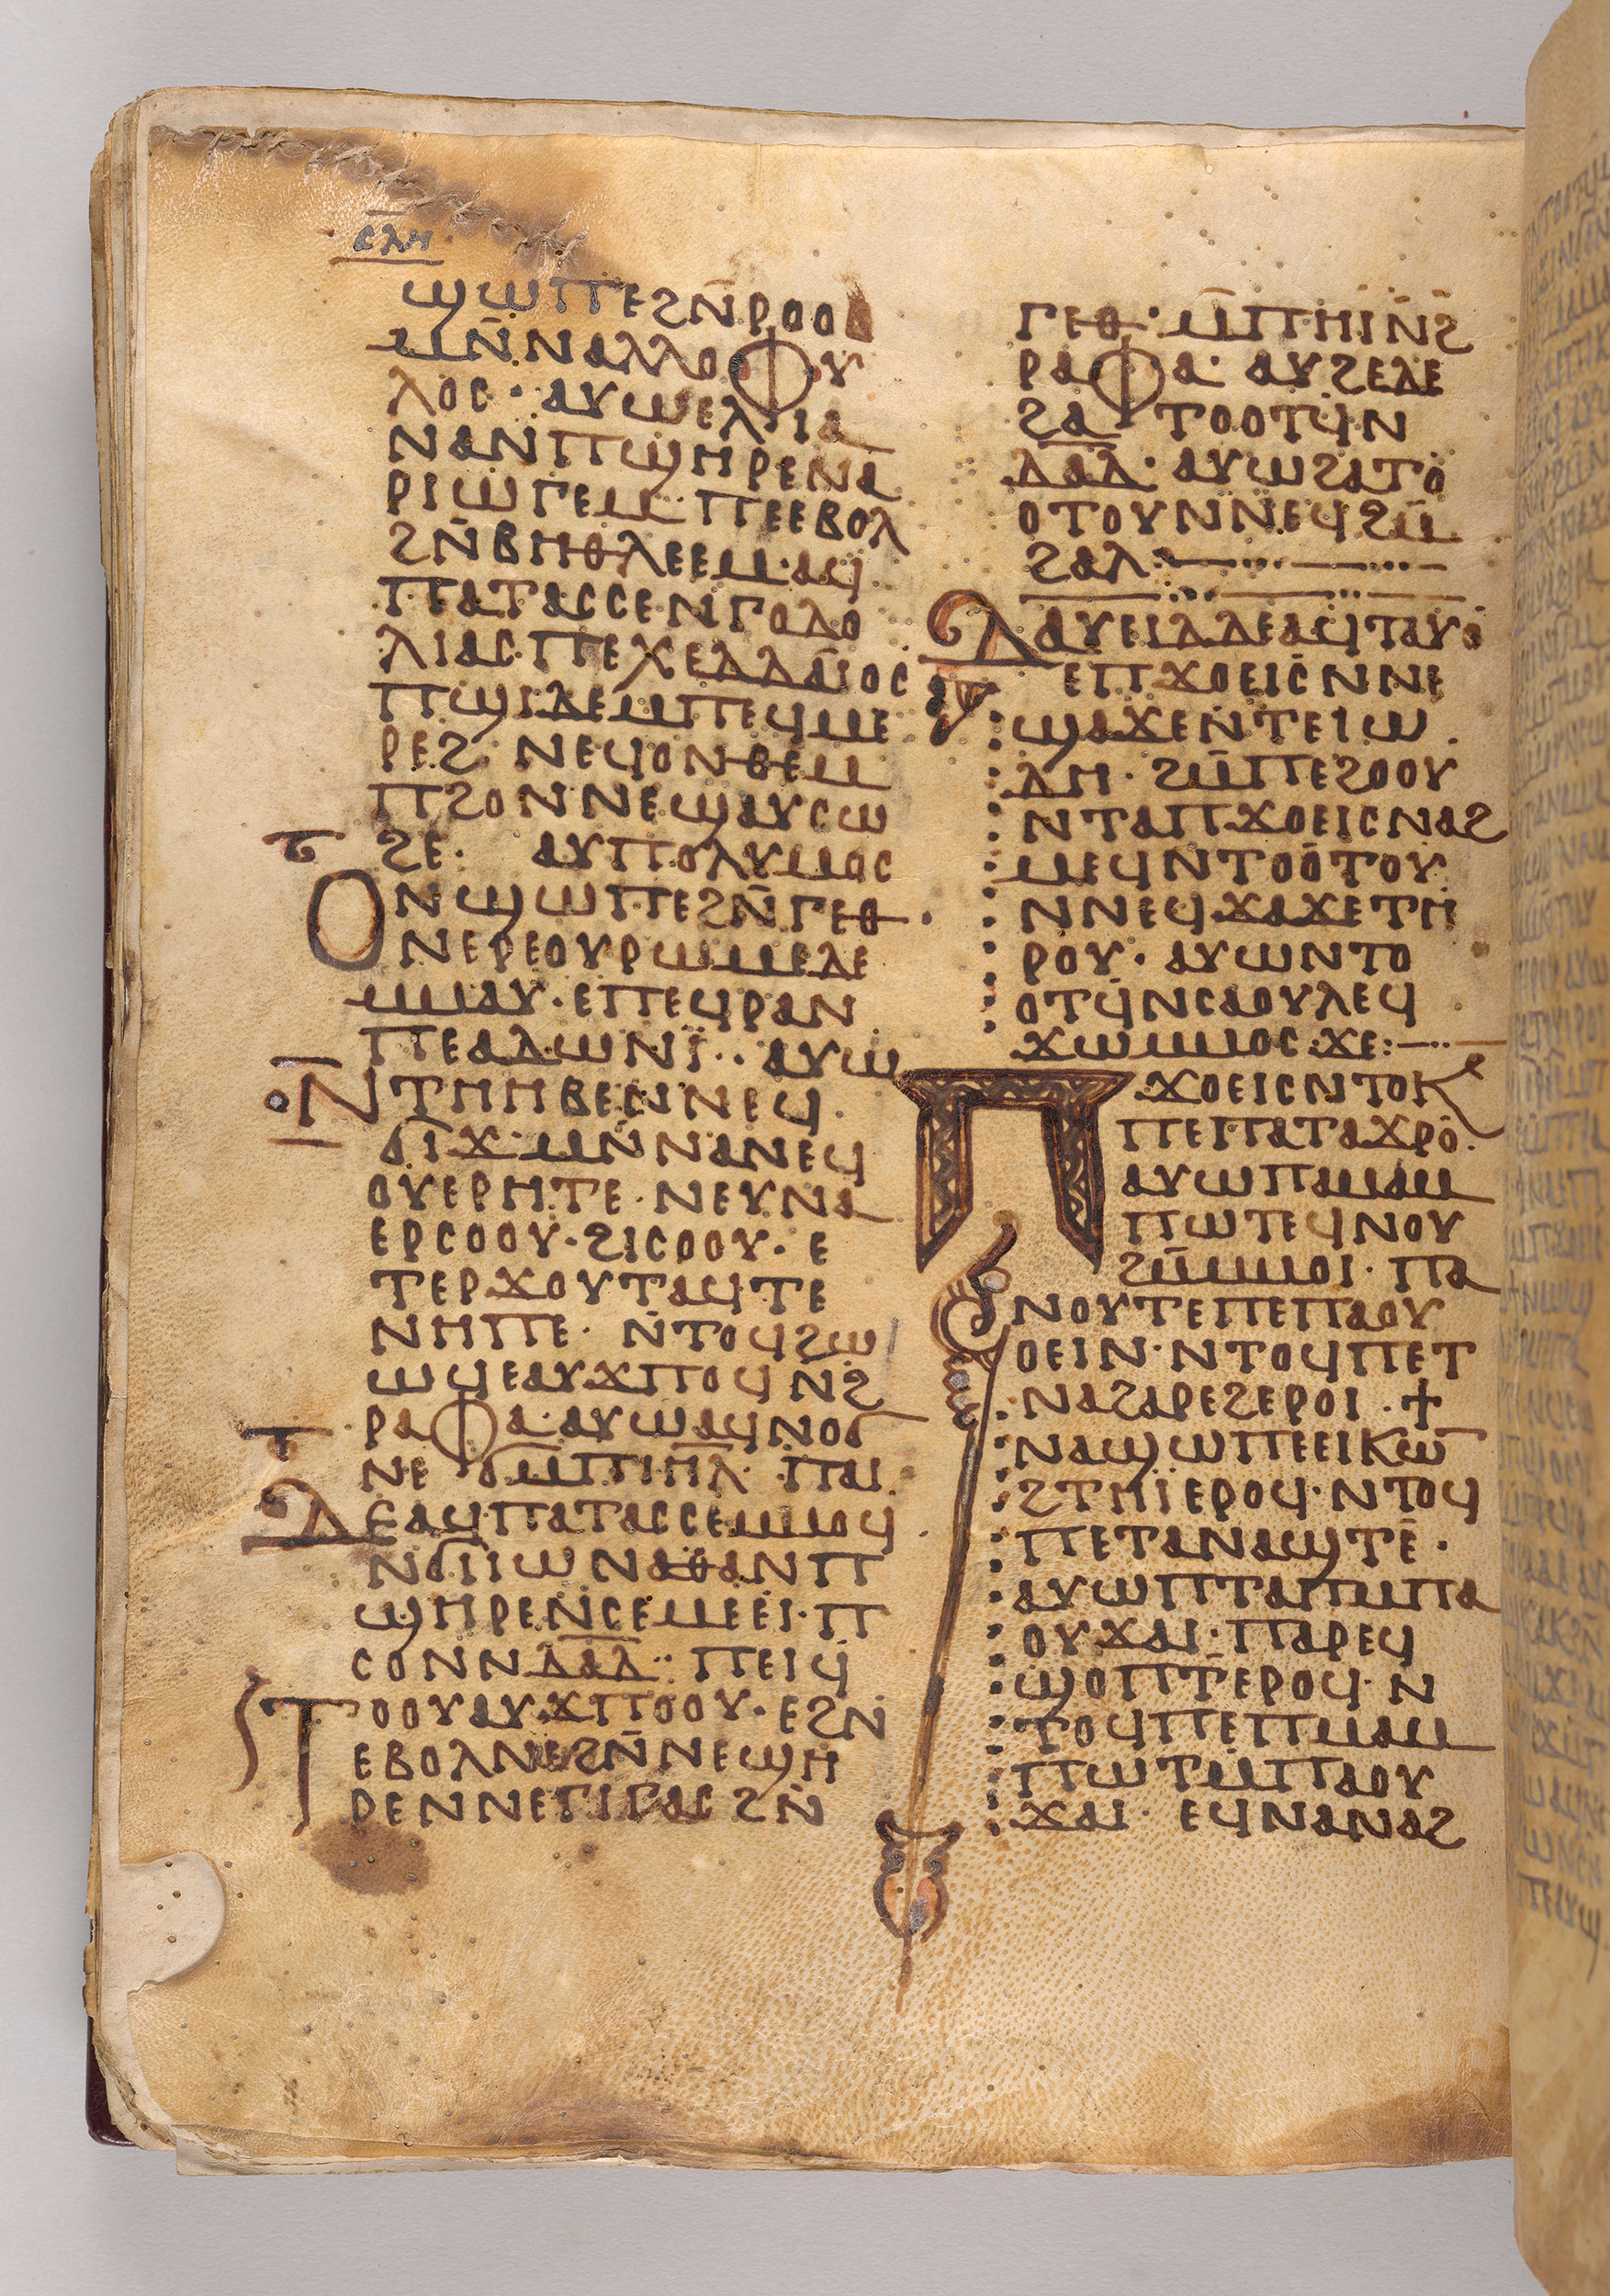 ⲥⲗⲏ
ϣⲱⲡⲉϩⲛ̄ⲣⲟⲟ
ⲙⲛ̄ⲛⲁⲗⲗⲟⲫⲩ
ⲗⲟⲥ· ⲁⲩⲱⲉⲗⲓⲁ
ⲛⲁⲛⲡϣⲏⲣⲉⲛⲁ
ⲣⲓⲱⲣⲅⲉⲙ· ⲡⲉⲉⲃⲟⲗ
ϩⲛ̄ⲃⲏⲑⲗⲉⲉⲙ·ⲁϥ
ⲡⲁⲧⲁⲥⲥⲉⲛⲅⲟⲇⲟ
ⲗⲓⲁⲥ·ⲡⲉⲭⲉⲇⲇⲁⲓⲟⲥ
ⲡϣⲓⲇⲉⲙⲡⲉϥⲙⲉ
ⲣⲉϩ· ⲛⲉϥⲟⲛⲑⲉⲙ
ⲡϩⲟⲛⲛⲉϣⲁⲩⲥⲱ
ϩⲉ· ⲁⲩⲡⲟⲗⲩⲙⲟⲥ
ⲟⲛϣⲱⲡⲉϩⲛ̄ⲅⲉⲑ·
ⲛⲉⲣⲉⲟⲩⲣⲱⲙⲉⲇⲉ
ⲙⲙⲁⲩ·ⲉⲡⲉϥⲣⲁⲛ
ⲡⲉⲁⲇⲱⲛⲓ̈·· ⲁⲩⲱ
ⲛⲧⲏⲏⲃⲉⲛⲛⲉϥ
ϭⲓϫ·ⲙⲛ̄ⲛⲁⲛⲉϥ
ⲟⲩⲉⲣⲏⲧⲉ·ⲛⲉⲩⲛⲁ
ⲉⲣⲥⲟⲟⲩ·ϩⲓⲥⲟⲟⲩ· ⲉ
ⲧⲉⲣϫⲟⲩⲧⲁϥⲧⲉ
ⲛⲏⲡⲉ· ⲛ̄ⲧⲟϥϩⲱ
ⲱϥⲉⲁⲩϫⲡⲟϥⲛϩ
ⲣⲁⲫⲁ·ⲁⲩⲱⲁϥⲛⲟϭ
ⲛⲉ ϭⲙ̄ⲡⲓⲏ̄ⲗ· ⲡⲁⲓ
ⲇⲉⲁϥⲡⲁⲧⲁⲥⲥⲉⲙⲙⲟϥ
ⲛϭⲓⲓⲱⲛⲁⲑⲁⲛⲡ
ϣⲏⲣⲉⲛⲥⲉⲙⲉⲉⲓ·ⲡ
ⲥⲟⲛⲛⲇⲁ̄ⲇ·: ⲡⲉⲓϥ
ⲧⲟⲟⲩⲁⲩϫⲡⲟⲟⲩ·ⲉϩⲛ
ⲉⲃⲟⲗⲛⲉϩⲛ̄ⲛⲉϣⲏ
ⲣⲉⲛⲛⲉⲅⲓⲅⲁⲥϩⲛ̄
ⲅⲉⲑ·ⲙ̄ⲡⲏⲓⲛ̄ϩ
ⲣⲁⲫⲁ· ⲁⲩϩⲉⲇⲉ
ϩⲁⲧⲟⲟⲧϥⲛ
ⲇⲁ̄ⲇ· ⲁⲩⲱϩⲁⲧⲟ
ⲟⲧⲟⲩⲛⲛⲉϥϩⲙ̄
ϩⲁⲗ:
ⲇⲁⲩⲉⲓⲇⲇⲉⲁϥⲧⲁⲩⲟ
ⲉⲡϫⲟⲉⲓⲥⲛⲛⲉ
ϣⲁϫⲉⲛⲧⲉⲓⲱ
ⲇⲏ· ϩⲙ̄ⲡⲉϩⲟⲟⲩ
ⲛⲧⲁⲡϫⲟⲉⲓⲥⲛⲁϩ
ⲙⲉϥⲛⲧⲟⲟⲧⲟⲩ
ⲛⲛⲉϥϫⲁϫⲉⲧⲏ
ⲣⲟⲩ· ⲁⲩⲱⲛⲧⲟ
ⲟⲧϥⲛⲥⲁⲟⲩⲗⲉϥ
ϫⲱⲙⲙⲟⲥ·ϫⲉ:
ⲡϫⲟⲉⲓⲥⲛⲧⲟⲕ
ⲡⲉⲡⲁⲧⲁϫⲣⲟ·
ⲁⲩⲱⲡⲁⲙⲁⲙ
ⲡⲱⲧⲉϥⲛⲟⲩ
ϩⲙ̄ⲙⲙⲟⲓ· ⲡⲁ
ⲛⲟⲩⲧⲉⲡⲉⲡⲁⲟⲩ
ⲟⲉⲓⲛ·ⲛⲧⲟϥⲡⲉⲧ
ⲛⲁϩⲁⲣⲉϩⲉⲣⲟⲓ· ϯ
ⲛⲁϣⲱⲡⲉⲉⲓⲕⲱ
ϩⲧⲏⲓⲉⲣⲟϥ·ⲛⲧⲟϥ
ⲡⲉⲧⲁⲛⲁϣⲧⲉ·
ⲁⲩⲱⲡⲧⲁⲡⲙⲡⲁ
ⲟⲩϫⲁⲓ·ⲡⲁⲣⲉϥ
ϣⲟⲡⲧⲉⲣⲟϥ·ⲛ
ⲧⲟϥⲡⲉⲡⲙⲁⲙ
ⲡⲱⲧⲙ̄ⲡⲁⲟⲩ
ϫⲁⲓ· ⲉϥⲛⲁⲛⲁϩ